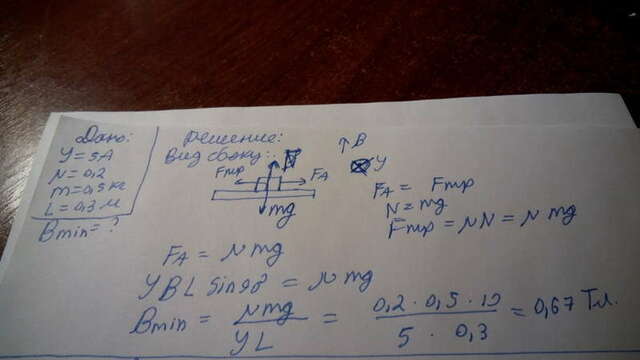 Дано:
У = 5А
N = 0,2
m = 0,5 кг
L = 0,3 м
Bmin = ?
Решение:
Вид сбоку:
N
Fтр
FA
mg
↑B
У
FA = Fтр
N = mg
Fтр = NN = N mg
FA = N mg
У B L sin90° = N mg
Bmin = N mg / У L = 0,2 · 0,5 · 10 / 5 · 0,3 = 0,67 Тл.